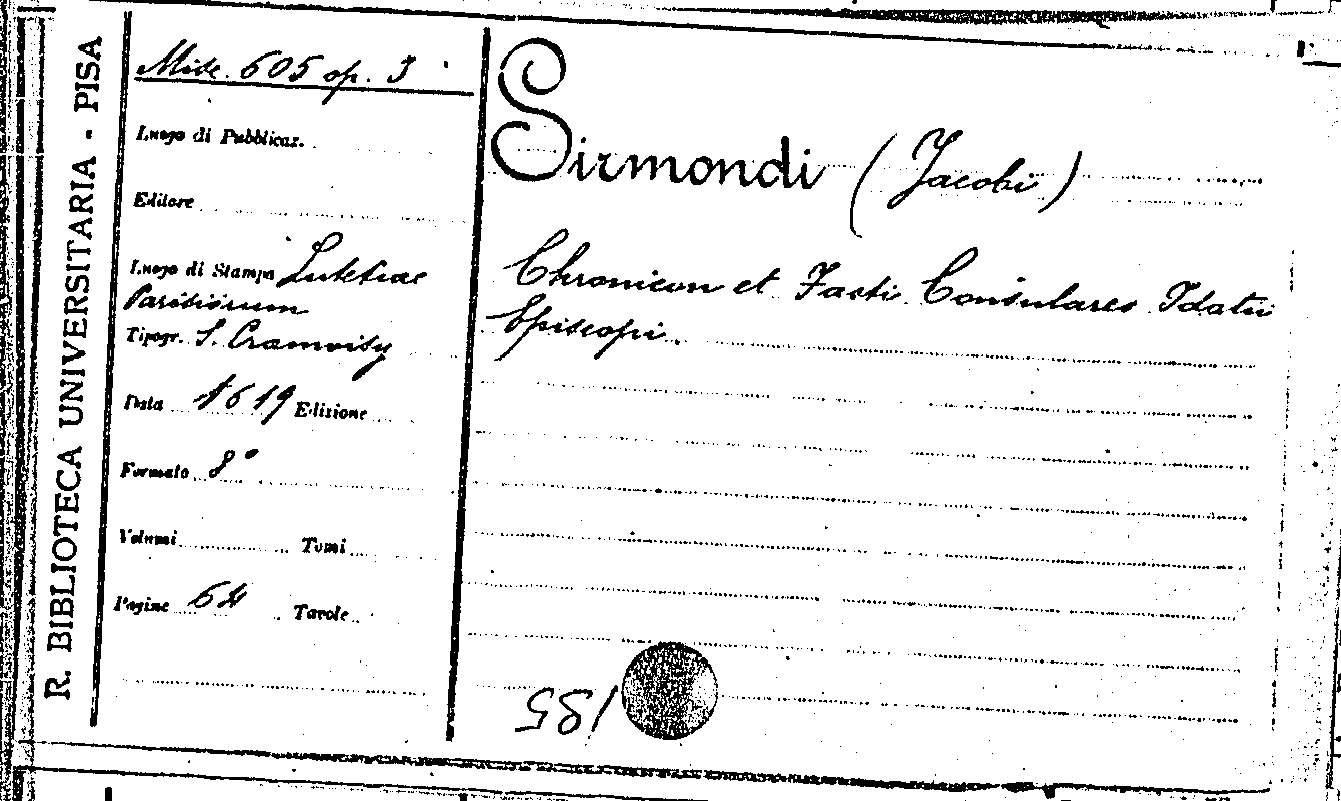 R. BIBLIOTECA UNIVERSITARIA - PISA
Misc. 605 op. 3
Luogo di Pubblicaz.
Editore
Luogo di Stampa Lutetiae
Parisiorum
Tipogr. S. Cramoisy
Data 1619 Edizione
Formato 8°
Volumi Tomi
Pagine 64 Tavole
Sirmondi (Jacobi)
Chronicon et Fasti Consulares Idatii
Episcopi.